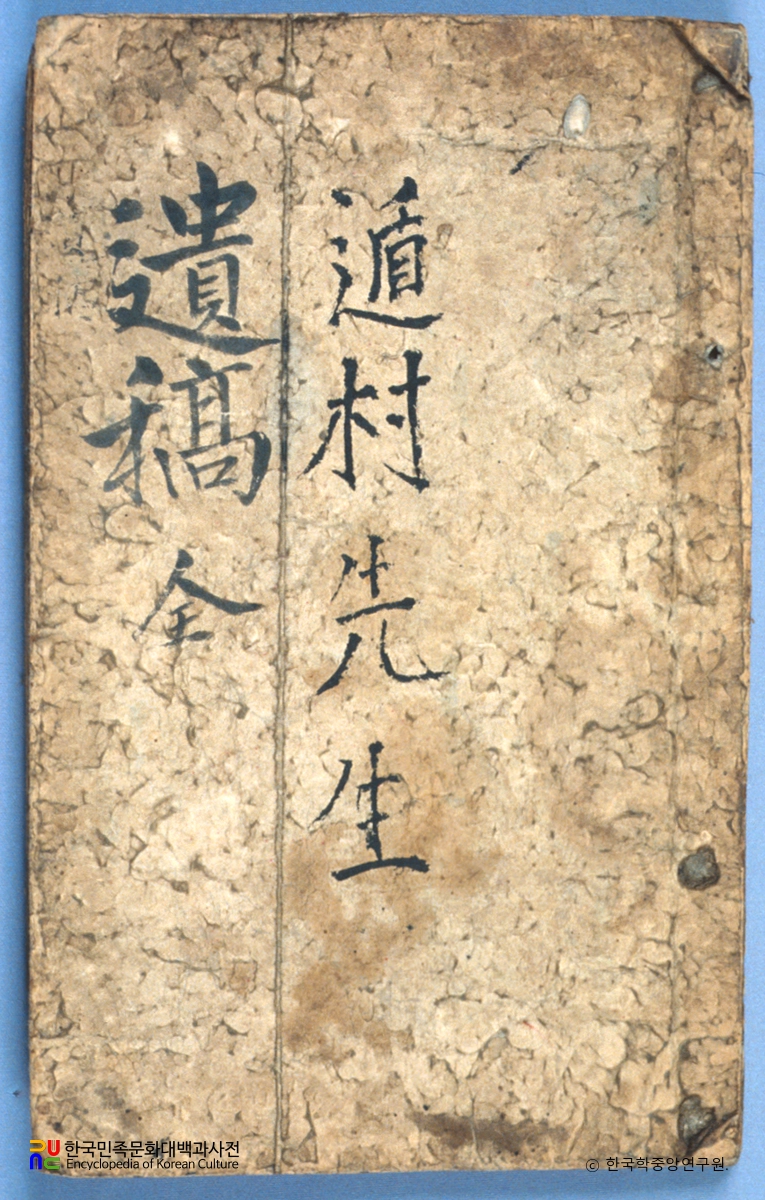 遁村先生
遺稿 全
한국민족문화대백과사전
Encyclopedia of Korean Culture
© 한국학중앙연구원